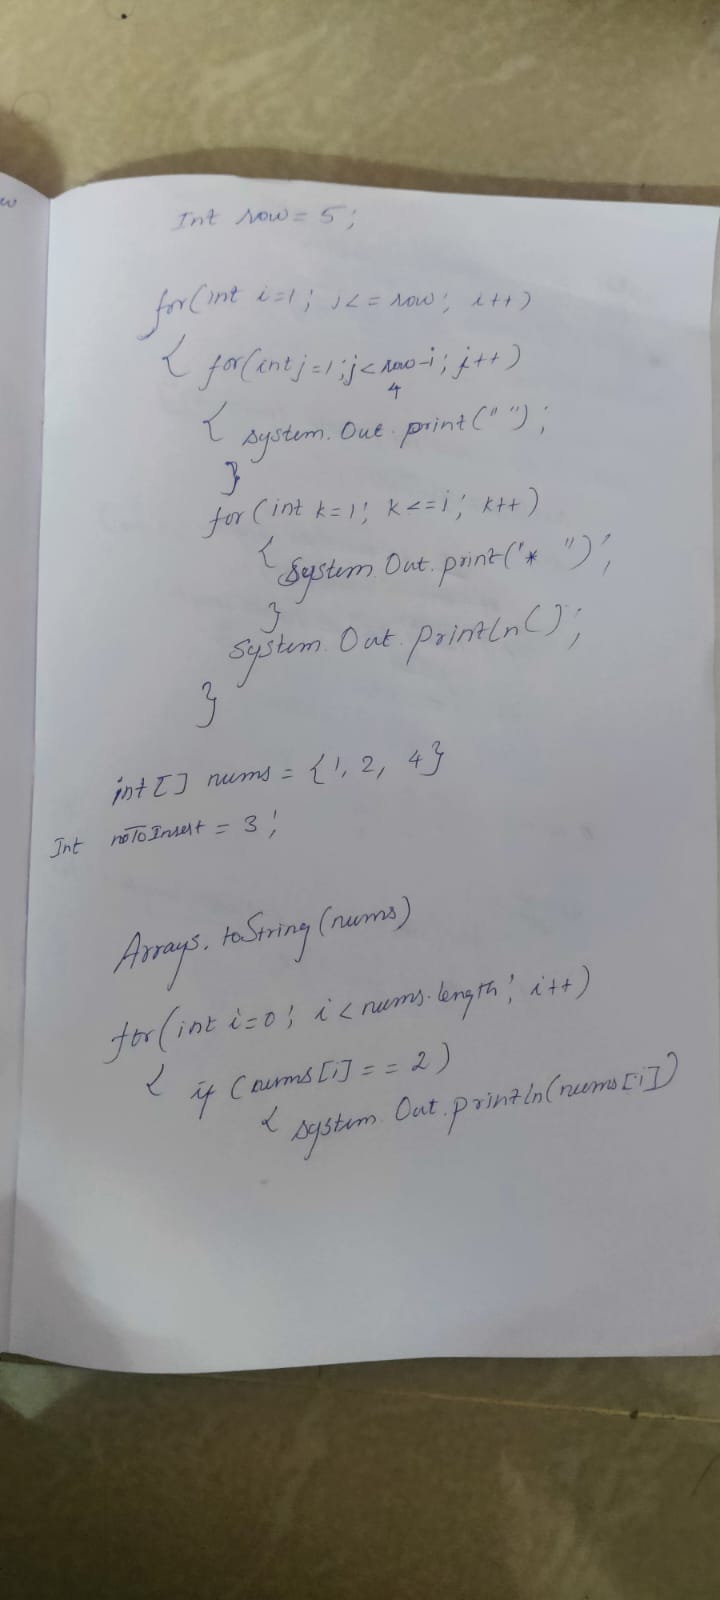 w
Int row = 5;
for(int i=1; i<=row; i++)
{ for(int j=1;j<row-i; j++)
4
{ system. Out. print(" ");
}
for (int k=1; k<=i; k++)
{ System. Out. print("* ");
}
system. Out. println();
}
int[] nums = {1, 2, 4}
Int noToInsert = 3;
Arrays. toString (nums)
for(int i=0; i<nums.length; i++)
{ if (nums[i] == 2)
{ system. Out. println(nums[i])